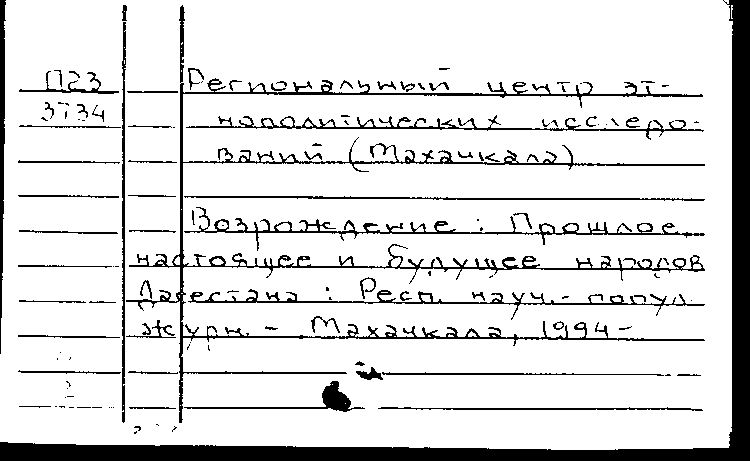 П23
3734
Региональный центр эт-
нополитических исследо-
ваний (Махачкала)
Возрождение : Прошлое,
настоящее и будущее народов
Дагестана : Респ. науч.- попул.
журн. - Махачкала, 1994-